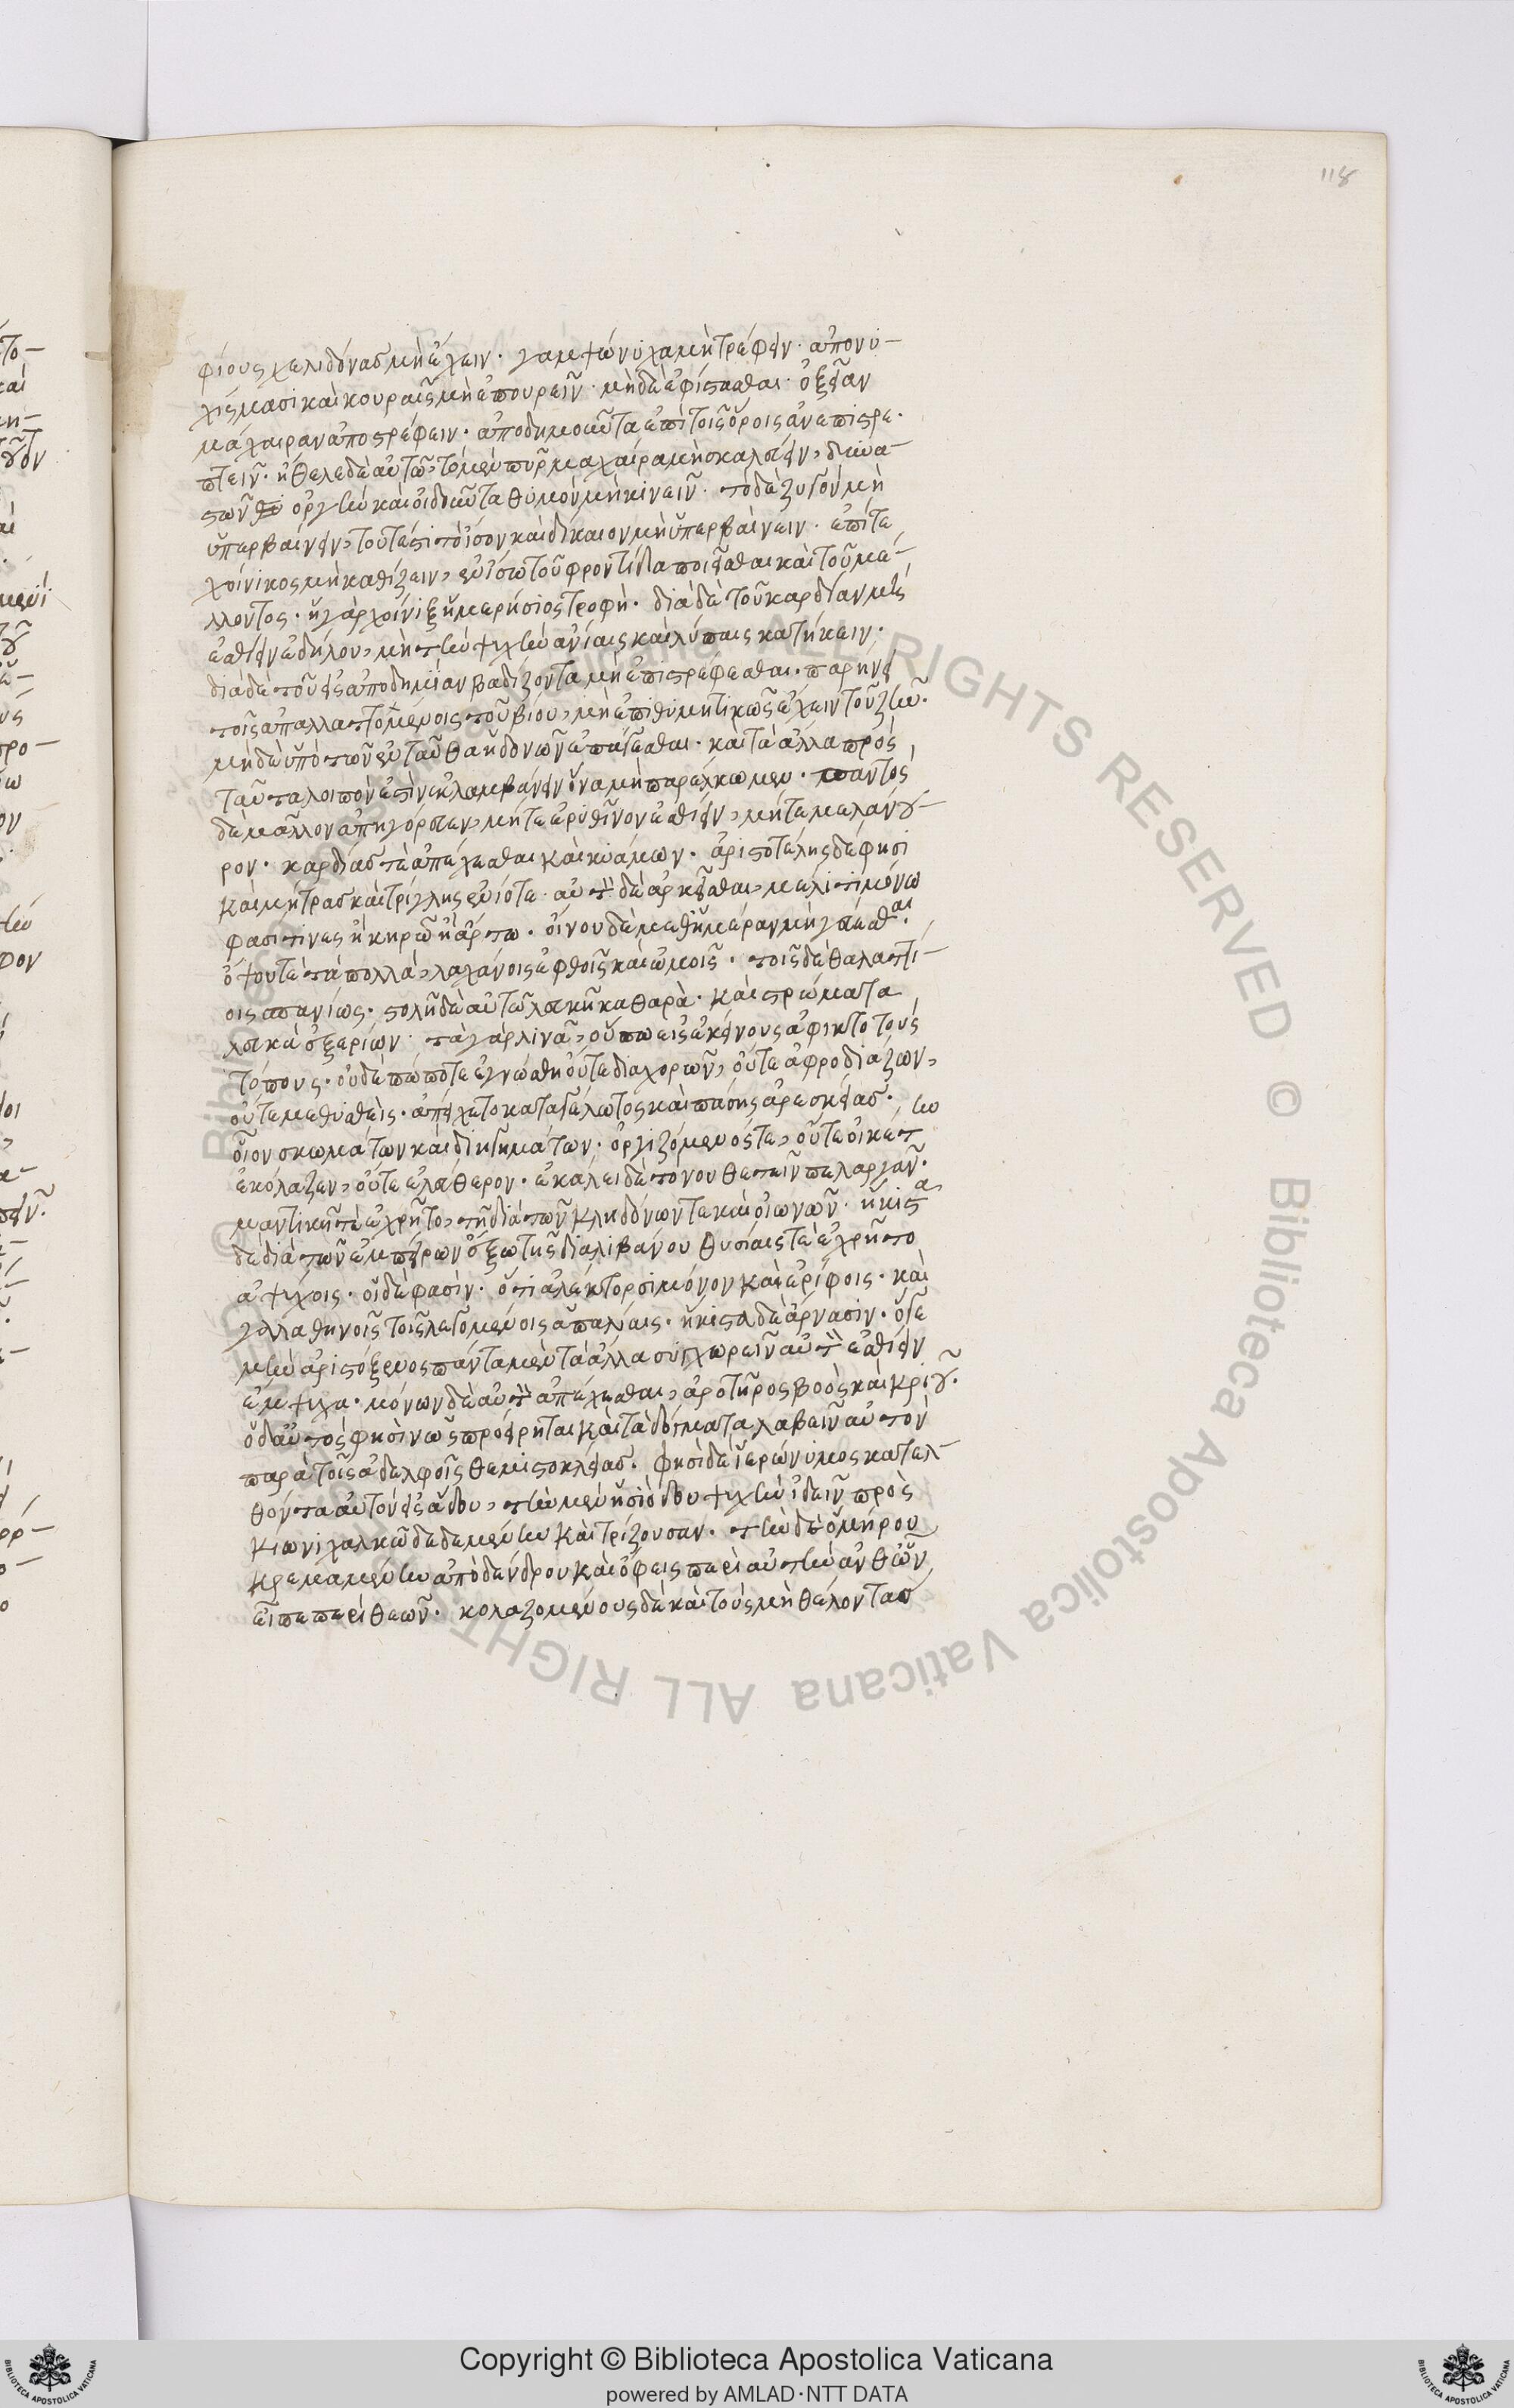 118
φίους χελιδόνας μὴ ἔχειν· γαμψώνυχα μὴ τρέφειν· ἀπονυ-
χίσμασι καὶ κουραῖς μὴ ἐπουρεῖν· μηδὲ ἐφίστασθαι· ὀξεῖαν
μάχαιραν ἀποστρέφειν· ἀποδημοῦντα ἐπὶ τοῖς ὅροις ἀνεπιστρε-
πτεῖν· ἤθελε δὲ αὐτῷ, τὸ μὲν πῦρ μαχαίρα μὴ σκαλεύειν, δυνα-
στῶν ὀργὴν καὶ οἰδοῦντα θυμὸν μὴ κινεῖν· τὸ δὲ ζυγὸν μὴ
ὑπερβαίνειν, τουτέστι τὸ ἴσον καὶ δίκαιον μὴ ὑπερβαίνειν· ἐπί τε
χοίνικος μὴ καθίζειν, ἐν ἴσω τοῦ φροντίδα ποιεῖσθαι καὶ τοῦ μέ-
λλοντος· ἡ γὰρ χοίνιξ ἡμερήσιος τροφή· διὰ δὲ τοῦ καρδίαν μὴ
ἐσθίειν ἐδήλου, μὴ τὴν ψυχὴν ἀνίαις καὶ λύπαις κατήκειν·
διὰ δὲ τοῦ εἰς ἀποδημίαν βαδίζοντα μὴ ἐπιστρέφεσθαι· παρήνει
τοῖς ἀπαλλαττομένοις τοῦ βίου, μὴ ἐπιθυμητικῶς ἔχειν τοῦ ζῆν·
μηδὲ ὑπὸ τῶν ἐνταῦθα ἡδονῶν ἐπάγεσθαι· καὶ τὰ ἄλλα πρὸς
ταῦτα λοιπὸν ἐστὶν ἐκλαμβάνειν ἵνα μὴ παρέλκωμεν· παντὸς
δὲ μᾶλλον ἀπηγόρευεν, μήτε ἐρυθῖνον ἐσθίειν, μήτε μελάνου-
ρον· καρδίας τε ἀπέχεσθαι καὶ κυάμων· ἀριστοτέλης δέ φησι
καὶ μήτρας καὶ τρίγλης ἐνίοτε· αὐτὸν δὲ ἀρκεῖσθαι, μέλιτι μόνω
φασί τινες ἢ κηρίῳ ἢ ἄρτω· οἴνου δὲ μεθ' ἡμέραν μὴ γεύεσθαι·
ὄψου τε τὰ πολλὰ, λαχάνοις ἑφθοῖς καὶ ὠμοῖς· τοῖς δὲ θαλαττί-
οις σπανίως· στολὴ δὲ αὐτῷ λευκὴ καθαρὰ· καὶ στρώματα
λευκὰ ἐξ ἐρίων· τὰ γὰρ λινᾶ, οὔπω εἰς ἐκείνους ἀφίκτο τοὺς
τόπους· οὐδέπώποτε ἐγνώσθη οὔτε διαχορῶν, οὔτε ἀφροδισιάζων,
οὔτε μεθυσθείς· ἀπείχετο καταγέλωτος καὶ πάσης ἀρεσκείας·
οἷον σκωμμάτων καὶ διηγημάτων· ὀργιζόμενός τε, οὔτε οἰκέτην
ἐκόλαζεν, οὔτε ἐλεύθερον· ἐκάλει δὲ τὸ νουθετεῖν πελαργᾶν·
μαντικῇ τε ἐχρῆτο, τῇ διὰ τῶν κληδόνων τε καὶ οἰωνῶν· ἥκιστα
δὲ διὰ τῶν ἐμπύρων ἔξω τῆς διὰ λιβάνου θυσίαις τε ἐχρῆτο
ἀψύχοις· οἱ δέ φασιν· ὅτι ἀλέκτορσι μόνον καὶ ἐρίφοις· καὶ
γαλαθηνοῖς τοῖς λεγομένοις ἁπαλίαις· ἥκιστα δὲ ἄρνασιν· ὅγε
μὴν ἀριστόξενος πάντα μὲν τὰ ἄλλα συγχωρεῖν αὐτὸν ἐσθίειν
ἔμψυχα· μόνων δὲ αὐτὸν ἀπέχεσθαι, ἀροτῆρος βοὸς καὶ κριοῦ·
ὁ δ' αὐτός φησὶν ὡς προείρηται καὶ τὰ δόγματα λαβεῖν αὐτὸν
παρὰ τοῖς ἀδελφοῖς θεμιστοκλείας· φησὶ δὲ ἱερώνυμος κατελ-
θόντα αὐτὸν εἰς ᾅδου, τὴν μὲν ἡσιόδου ψυχὴν ἰδεῖν πρὸς
κίονι χαλκῶ δεδεμένην καὶ τρίζουσαν· τὴν δὲ ὁμήρου
κρεμαμένην ἀπὸ δένδρου καὶ ὄφεις περὶ αὐτὴν ἀνθ' ὧν
εἶπε περὶ θεῶν· κολαζομένους δὲ καὶ τοὺς μὴ θέλοντας
© Biblioteca Apostolica Vaticana ALL RIGHTS RESERVED
Copyright © Biblioteca Apostolica Vaticana
powered by AMLAD·NTT DATA